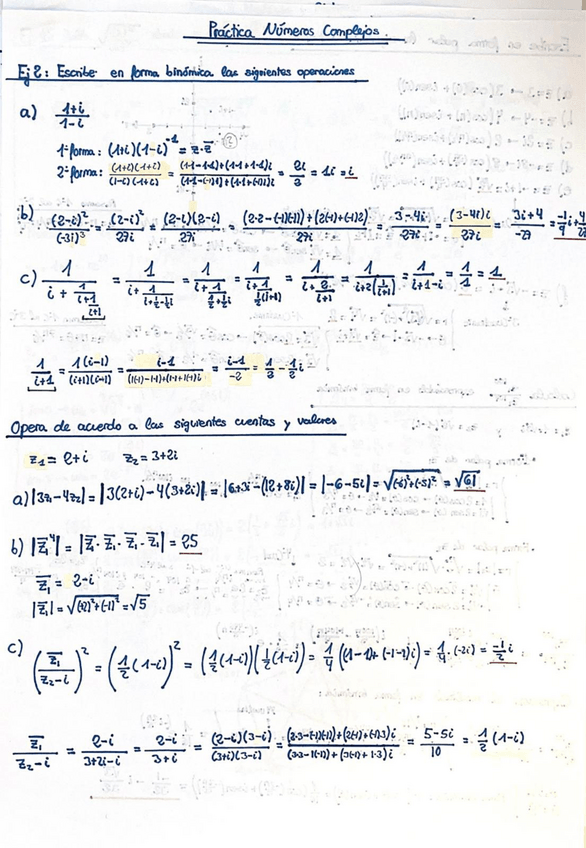 Práctica Números Complejos.
Ej 2: Escribe en forma binómica las siguientes operaciones
a) (1+i)/(1-i)
1ª forma: (1+i)(1-i)^-1 = z·z̄
2ª forma: (1+i)(1+i)/(1-i)(1+i) = ((1·1-1·1)+(1·1+1·1)i)/((1·1-(-1)1)+(1·1+(-1)1)i) = 2i/2 = 1i = i
b) (2-i)²/(-3i)³ = (2-i)²/27i = (2-i)(2-i)/27i = ((2·2-(-1)(-1))+(2(-1)+(-1)2)i)/27i = (3-4i)/27i = (3-4i)i/27i = (3i+4)/-27 = -1/9 i+4/27
c) 1/(i+1/(i+1/(i+1))) = 1/(i+1/(i+1/2-1/2i)) = 1/(i+1/(1/2+1/2i)) = 1/(i+1/(1/2(i+1))) = 1/(i+2/(i+1)) = 1/(i+2(1/(i+1))) = 1/(i+1-i) = 1/1 = 1
1/(i+1) = 1(i-1)/(i+1)(i-1) = (i-1)/((1(-1)-1·1)+(1·1+1(-1))i) = (i-1)/-2 = 1/2-1/2i
Opera de acuerdo a las siguientes cuentas y valores
z₁ = 2+i z₂ = 3+2i
a) |3z₁-4z₂| = |3(2+i)-4(3+2i)| = |6+3i-(12+8i)| = |-6-5i| = √((-6)²+(-5)²) = √61
b) |z̄₁⁴| = |z̄₁·z̄₁·z̄₁·z̄₁| = 25
z̄₁ = 2-i
|z̄₁| = √((2)²+(-1)²) = √5
c) (z̄₁/(z₂-i))² = (1/2(1-i))² = (1/2(1-i))(1/2(1-i)) = 1/4((1-1)+(-1-1)i) = 1/4·(-2i) = -1/2 i
z̄₁/(z₂-i) = (2-i)/(3+2i-i) = (2-i)/(3+i) = (2-i)(3-i)/(3+i)(3-i) = ((2·3-(-1)(-1))+(2(-1)+(-1)·3)i)/((3·3-1(-1))+(3(-1)+1·3)i) = (5-5i)/10 = 1/2(1-i)